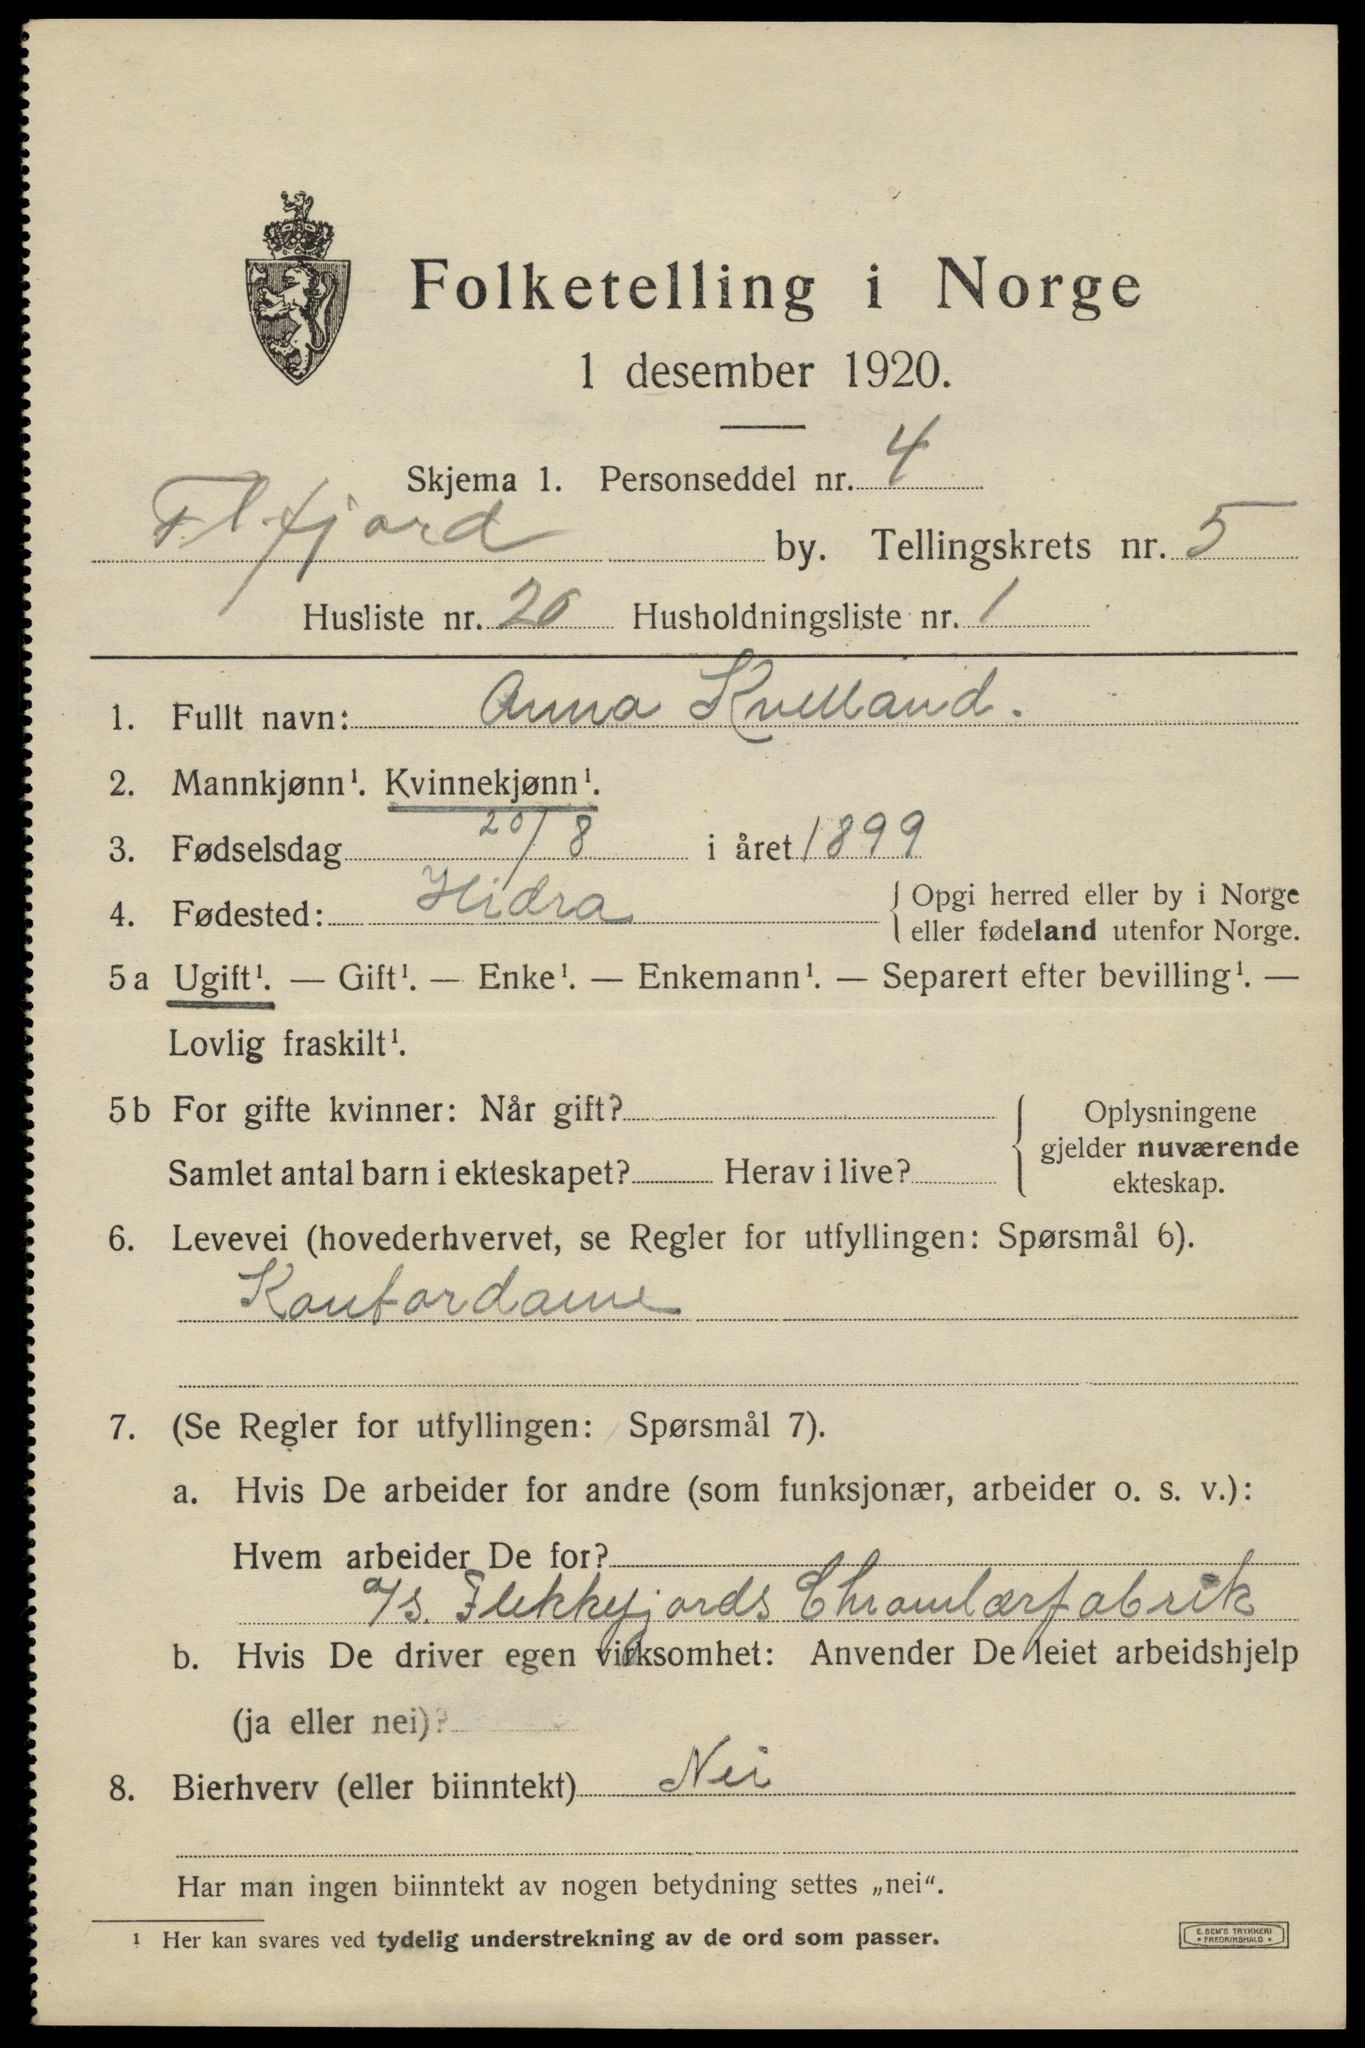 Folketelling i Norge
1 desember 1920.
Skjema 1. Personseddel nr. 4
Fl.fjord by. Tellingskrets nr. 5
Husliste nr. 20 Husholdningsliste nr. 1
1. Fullt navn: Anna Kvelland.
2. Mannkjønn¹. Kvinnekjønn¹.
3. Fødselsdag 20/8 i året 1899
4. Fødested: Hidra { Opgi herred eller by i Norge
eller fødeland utenfor Norge.
5a Ugift¹. — Gift¹. — Enke¹. — Enkemann¹. — Separert efter bevilling¹. —
Lovlig fraskilt¹.
5b For gifte kvinner: Når gift?
Samlet antal barn i ekteskapet? Herav i live?
{ Oplysningene
gjelder nuværende
ekteskap.
6. Levevei (hovederhvervet, se Regler for utfyllingen: Spørsmål 6).
Kontordame
7. (Se Regler for utfyllingen: Spørsmål 7).
a. Hvis De arbeider for andre (som funksjonær, arbeider o. s. v.):
Hvem arbeider De for?
a/s. Flekkefjords Chromlærfabrik
b. Hvis De driver egen virksomhet: Anvender De leiet arbeidshjelp
(ja eller nei)?
8. Bierhverv (eller biinntekt) Nei
Har man ingen biinntekt av nogen betydning settes „nei“.
¹ Her kan svares ved tydelig understrekning av de ord som passer.
E. SEM'S TRYKKERI
* FREDRIKSHALD *